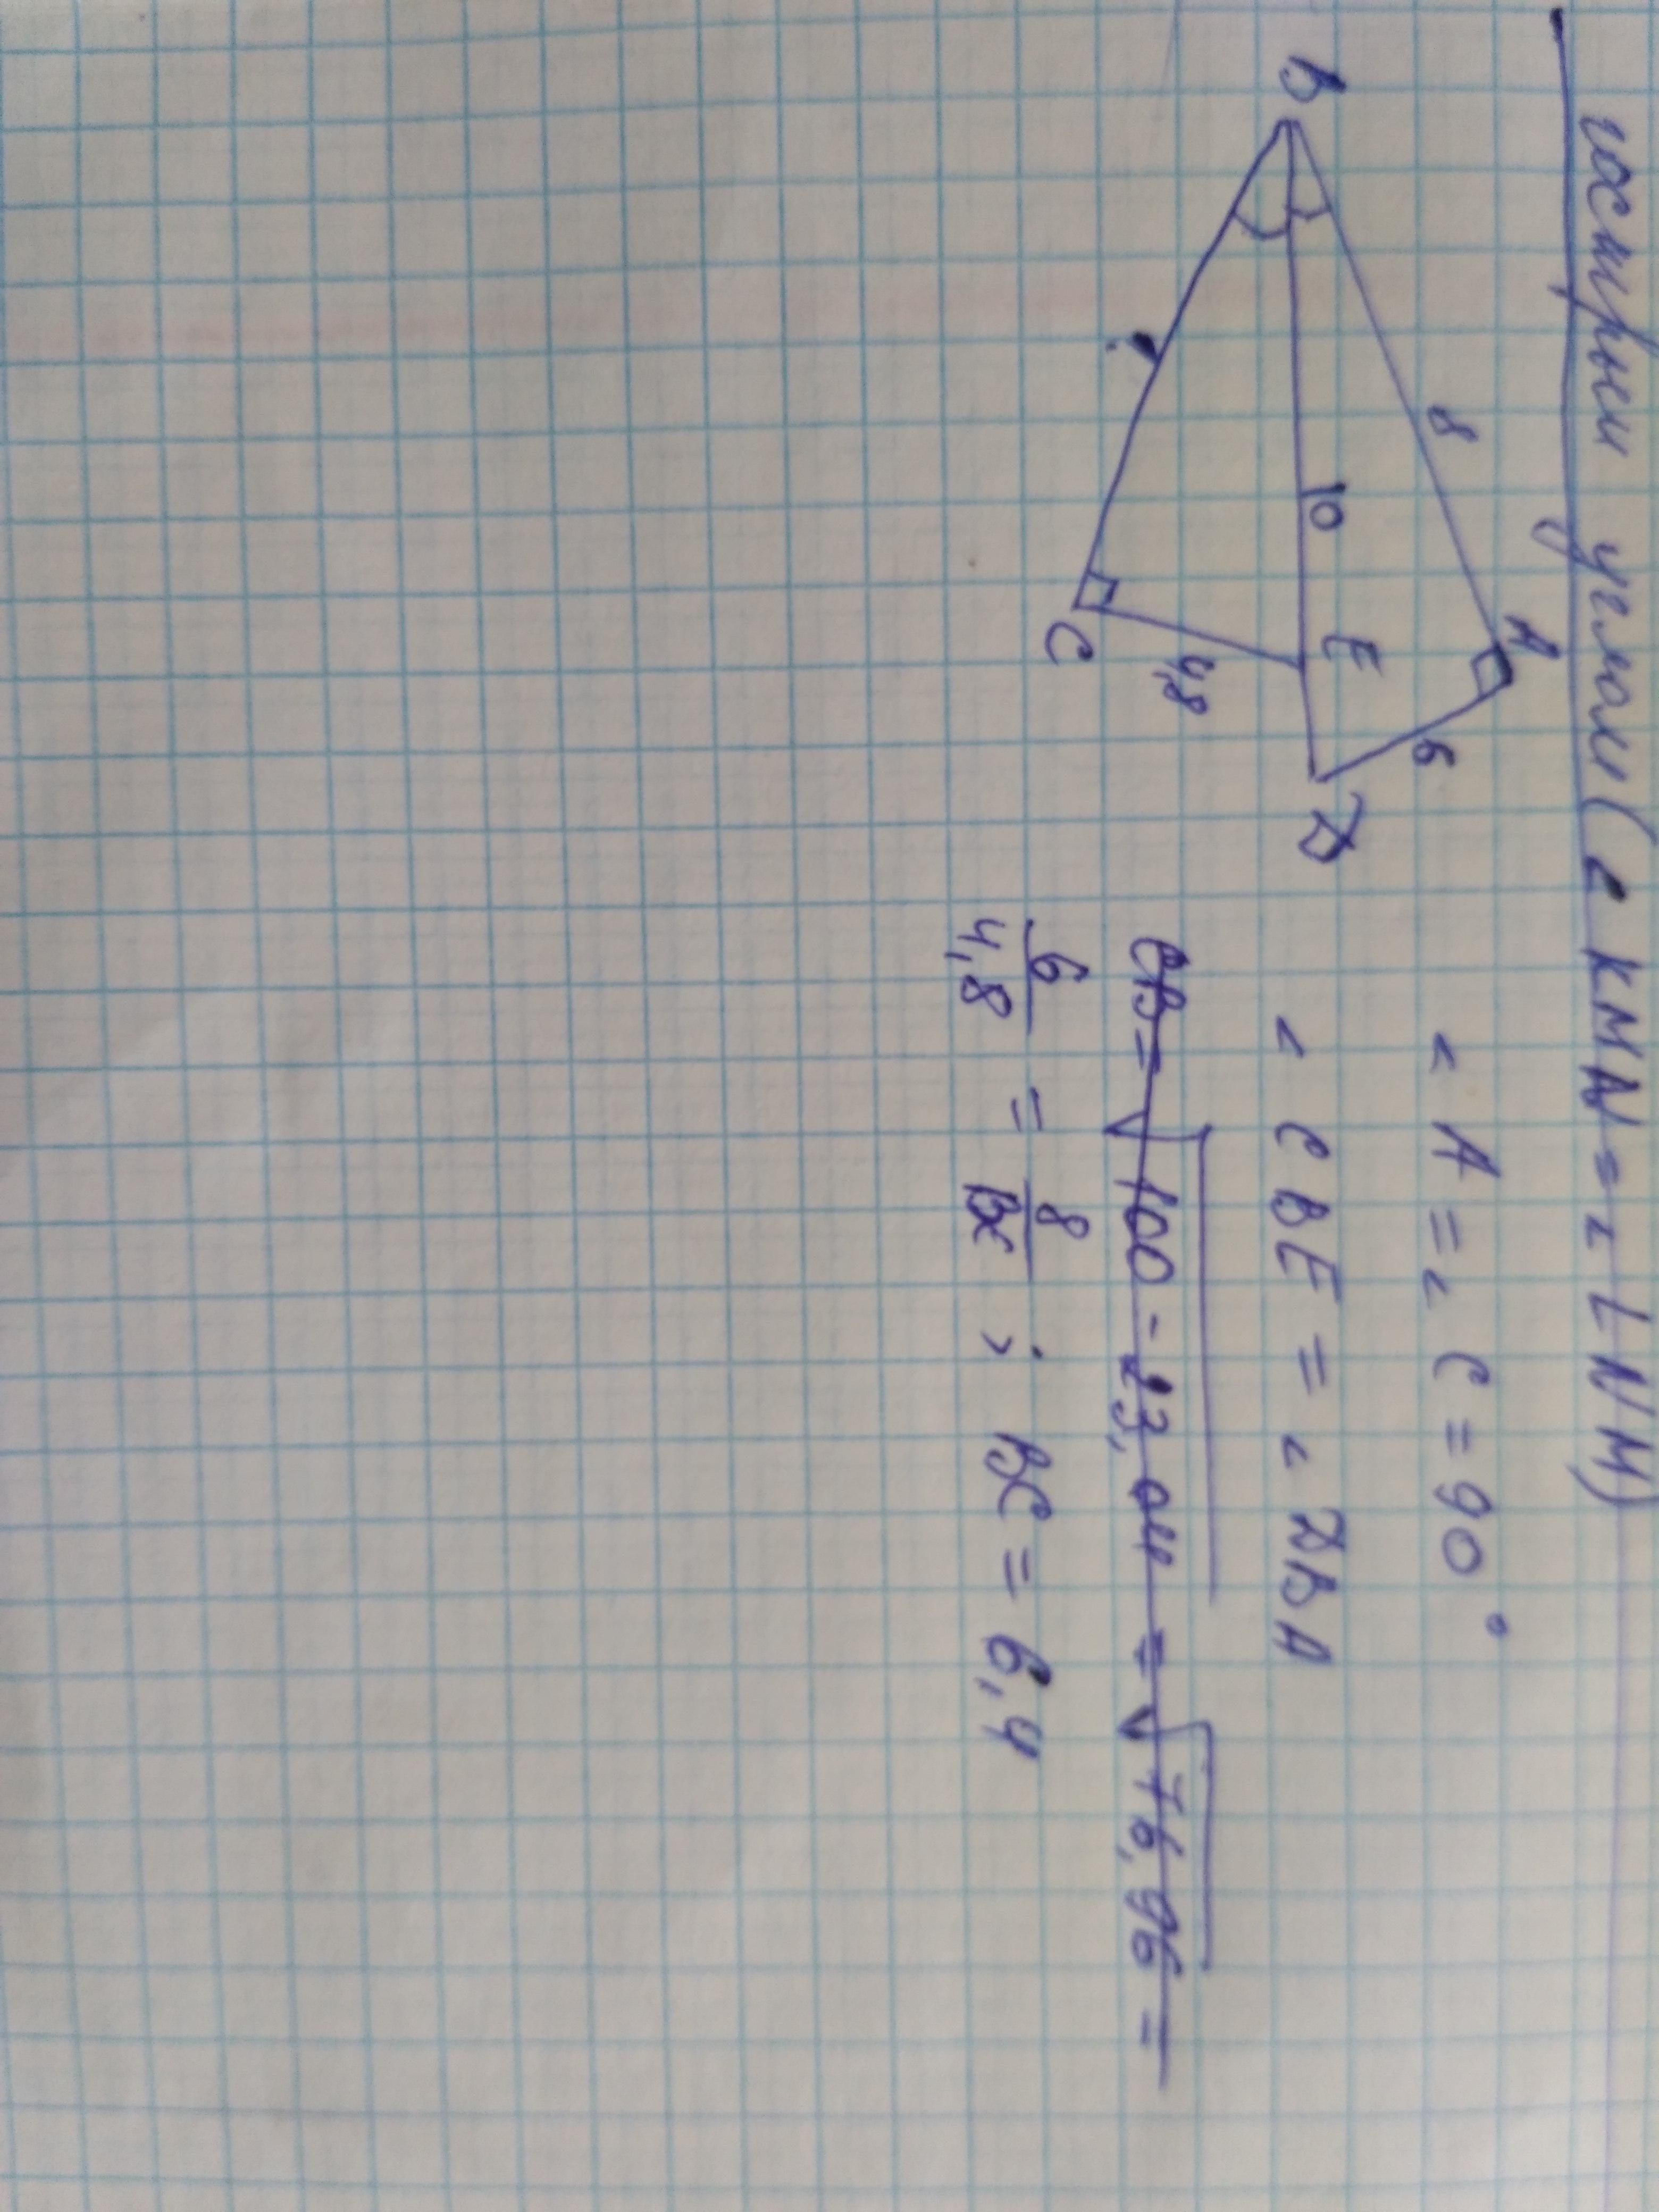 острым углом (∠ KMN = ∠ LNM)
B
8
A
10
E
6
D
?
C
4,8
∠ A = ∠ C = 90°
∠ CBE = ∠ DBA
CB = √100 - 23,04 = √76,96 =
6/4,8 = 8/BC ; BC = 6,4